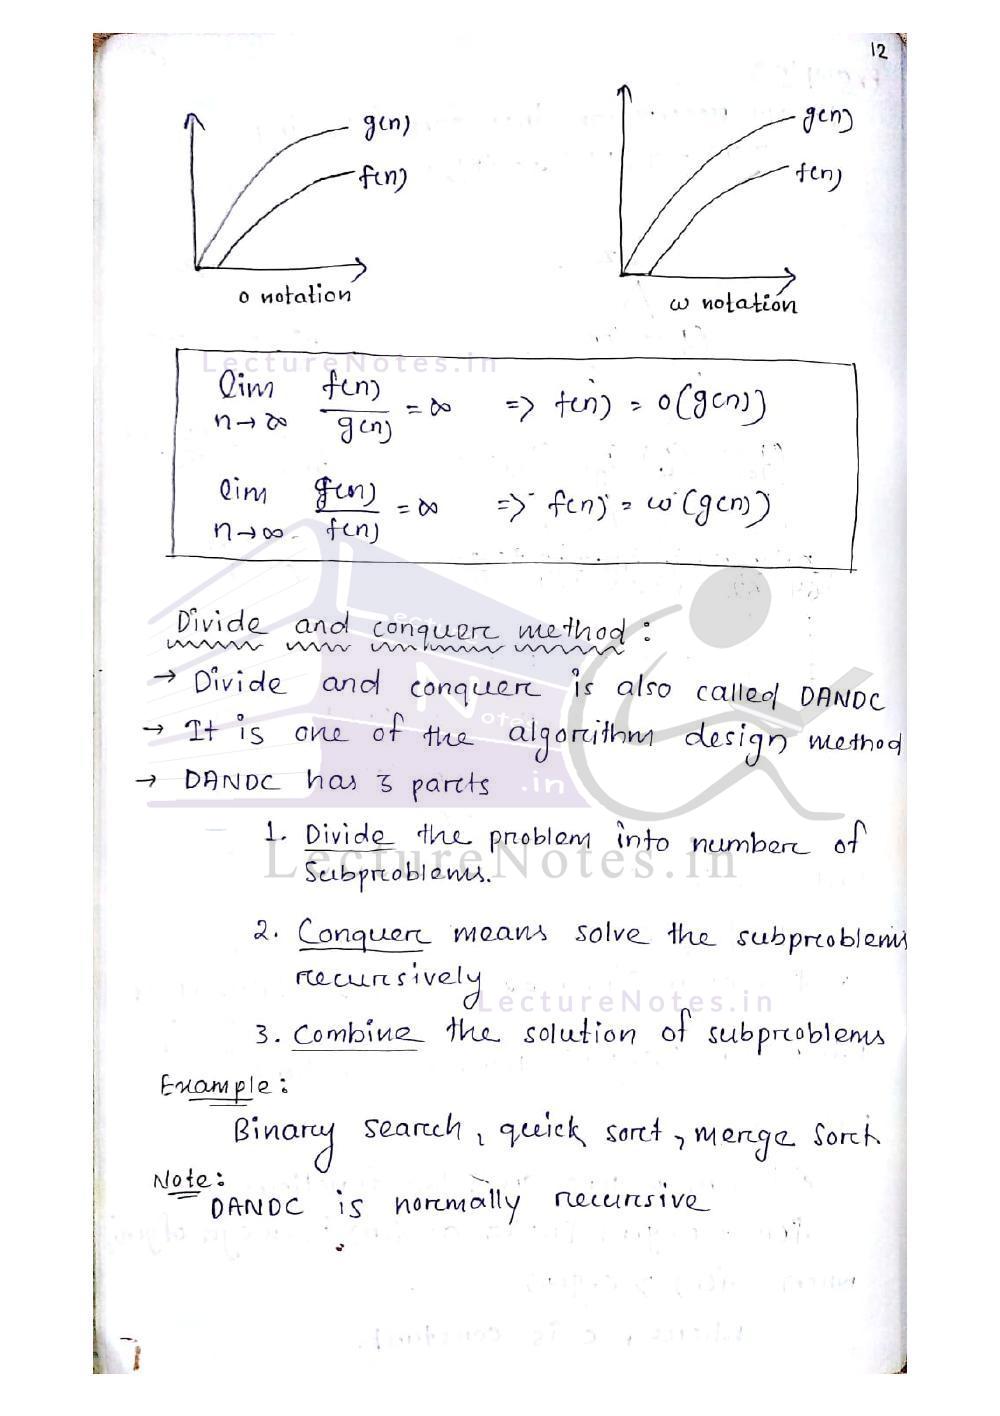 12
g(n)
f(n)
o notation
g(n)
f(n)
ω notation
LectureNotes.in
lim n→∞ f(n)/g(n) = ∞ => f(n) = o(g(n))
lim n→∞ g(n)/f(n) = ∞ => f(n) = ω(g(n))
Divide and conquer method :
→ Divide and conquer is also called DANDC
→ It is one of the algorithm design method
→ DANDC has 3 parts
Lecture
Notes
.in
1. Divide the problem into number of
LectureNotes.in
Subproblems.
2. Conquer means solve the subproblems
recursively
LectureNotes.in
3. Combine the solution of subproblems
Example :
Binary search, quick sort, merge sort.
Note :
DANDC is normally recursive